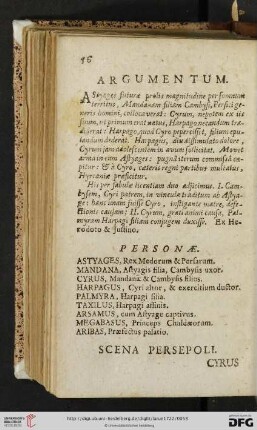 96
ARGUMENTUM.
Astyages futuræ prolis magnitudine per somnium
territus, Mandanam filiam Cambysi, Persici ge-
neris homini, collocaverat: Cyrum, nepotem ex iis
suum, ut primum erat natus, Harpago necandum tra-
diderat: Harpago, quod Cyro pepercisset, filium epu-
landum dederat. Harpagus, diu dissimulato dolore,
Cyrum jam adolescentem in avum sollicitat. Movet
arma in eum Astyages: pugna utrimque commissa
capitur: & a Cyro, cateri regni partibus mulctatus,
Hyrcaniæ præficitur.
His per fabulæ licentiam duo adjicimus. I. Camby-
sem, Cyri patrem, in vincula traditum ab Astya-
ge: hanc causam fuisse Cyro, instigante matre, defe-
ctionis caujam; II. Cyrum, grati animi causa, Pal-
myram Harpagi filiam conjugem duxisse. Ex He-
rodoto & Justino.
PERSONÆ.
ASTYAGES, Rex Medorum & Persarum.
MANDANA, Astyagis filia, Cambysis uxor.
CYRUS, Mandanæ & Cambysis filius.
HARPAGUS, Cyri altor, & exercitûs ductor.
PALMYRA, Harpagi filia.
TAXILUS, Harpagi affinis.
ARSAMUS, cum Astyage captivus.
MEGABASUS, Princeps Chaldæorum.
ARIBAS, Præfectus palatio.
SCENA PERSEPOLI.
CYRUS
DFG